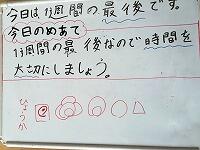 今日は1週間の最後です。
今日のめあて
1週間の最後なので時間を
大切にしましょう。
ひょうか